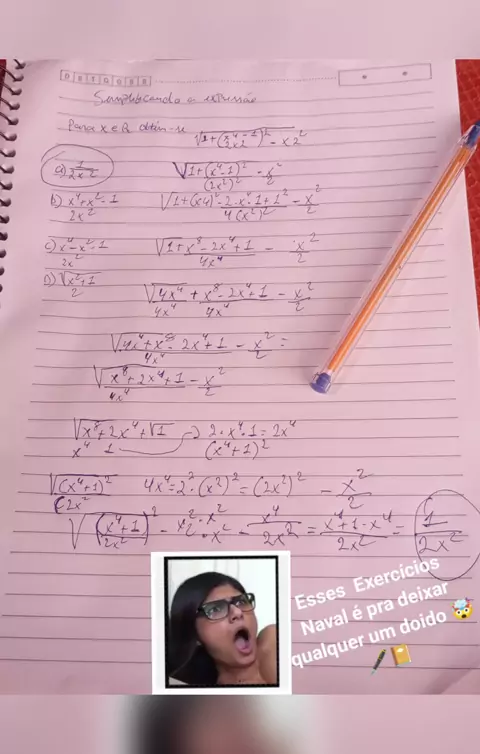 D S T Q Q S S
Simplificando a expressão
Para x ∈ R obtém-se √1+(x⁴-1/2x²)² - x²/2
a) 1/2x² √1+(x⁴-1)²/(2x²)² - x²/2
b) x⁴+x²-1/2x² √1+(x⁴)²-2·x⁴·1+1²/4(x²)² - x²/2
c) x⁴-x²-1/2x² √1+x⁸-2x⁴+1/4x⁴ - x²/2
D) √x²+1/2 √4x⁴/4x⁴+x⁸-2x⁴+1/4x⁴ - x²/2
√4x⁴+x⁸-2x⁴+1/4x⁴ - x²/2 =
√x⁸+2x⁴+1/4x⁴ - x²/2
√x⁸+2x⁴+√1 → 2·x⁴·1=2x⁴
x⁴ 1 (x⁴+1)²
√(x⁴+1)²/2x² 4x⁴=2²·(x²)²=(2x²)² - x²/2
√(x⁴+1/2x²)² - x²·x²/2·x² - x⁴/2x² = x⁴+1-x⁴/2x² = 1/2x²
Esses Exercícios
Naval é pra deixar
qualquer um doido 🤯